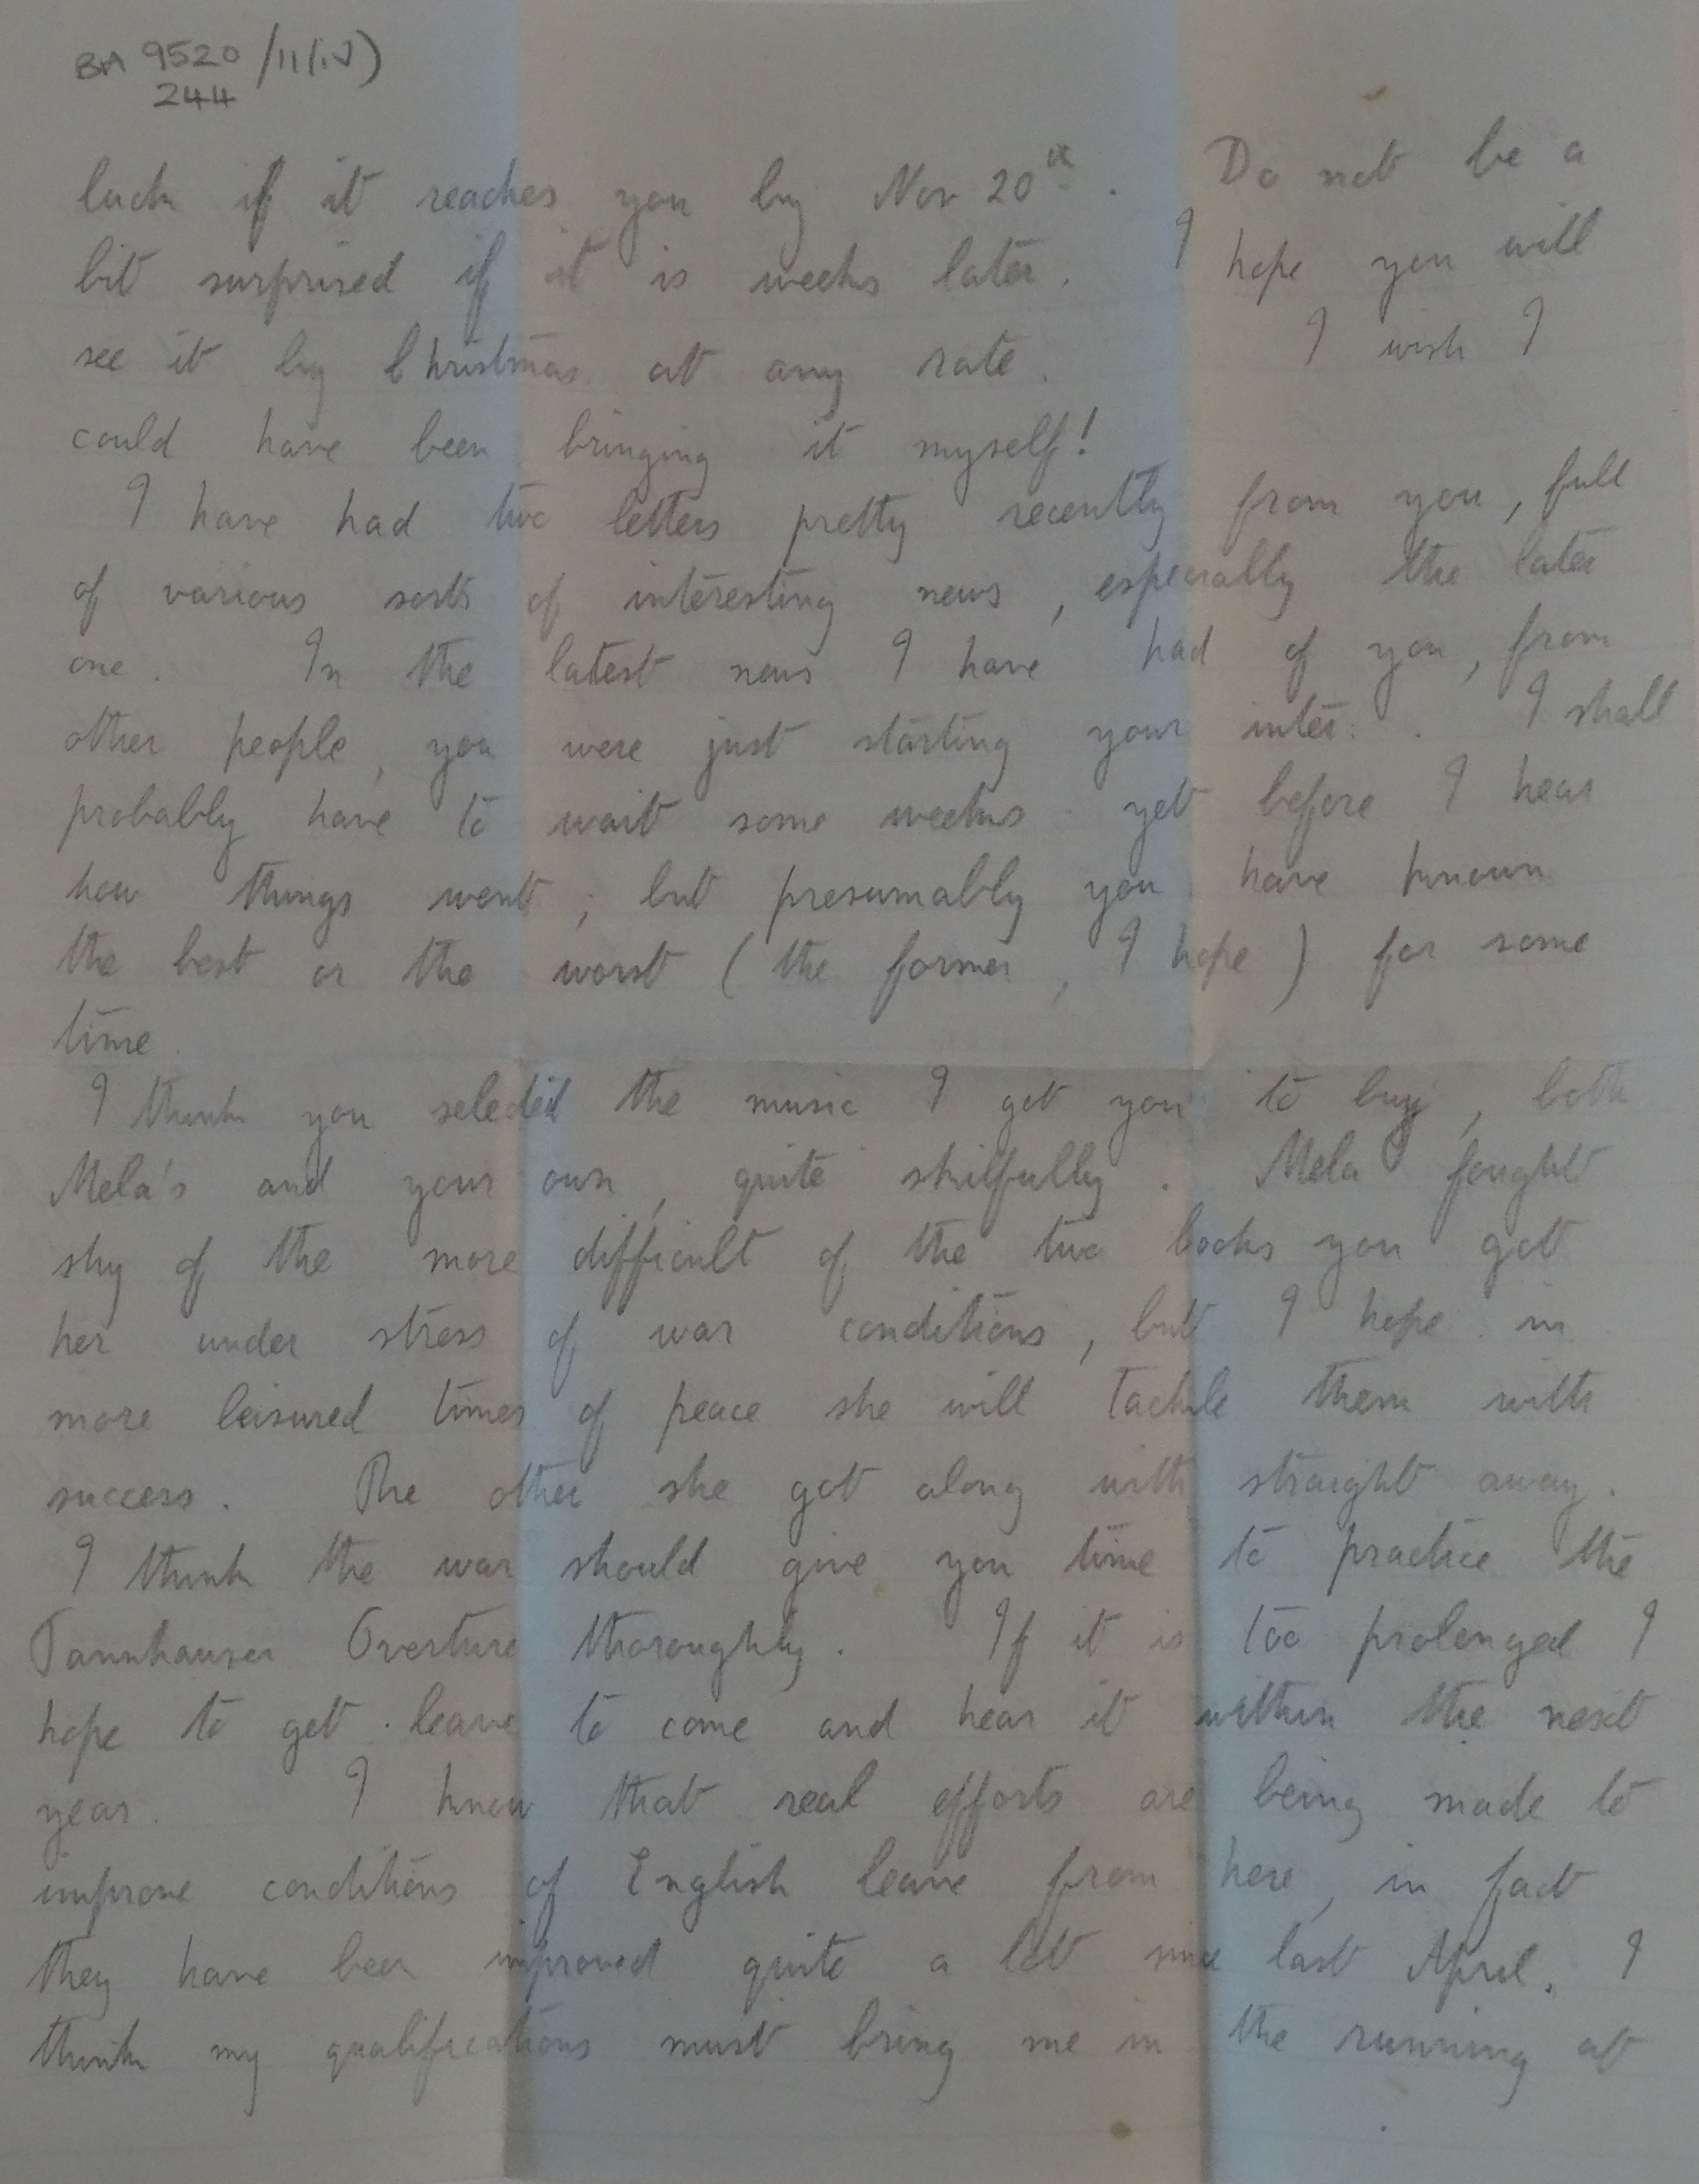 BA 9520/11(iv)
244
luck if it reaches you by Nov 20th. Do not be a
bit surprised if it is weeks later. I hope you will
see it by Christmas at any rate. I wish I
could have been bringing it myself!
I have had two letters pretty recently from you, full
of various sorts of interesting news, especially the later
one. In the latest news I have had of you, from
other people, you were just starting your inter. . I shall
probably have to wait some weeks yet before I hear
how things went; but presumably you have known
the best or the worst (the former, I hope) for some
time.
I think you selected the music I got you to buy, both
Mela's and your own, quite skilfully. Mela fought
shy of the more difficult of the two books you got
her under stress of war conditions, but I hope in
more leisured times of peace she will tackle them with
success. The other she got along with straight away.
I think the war should give you time to practice the
Tannhauser Overture thoroughly. If it is too prolonged I
hope to get leave to come and hear it within the next
year. I know that real efforts are being made to
improve conditions of English leave from here, in fact
they have been improved quite a lot since last April. I
think my qualifications must bring me in the running at